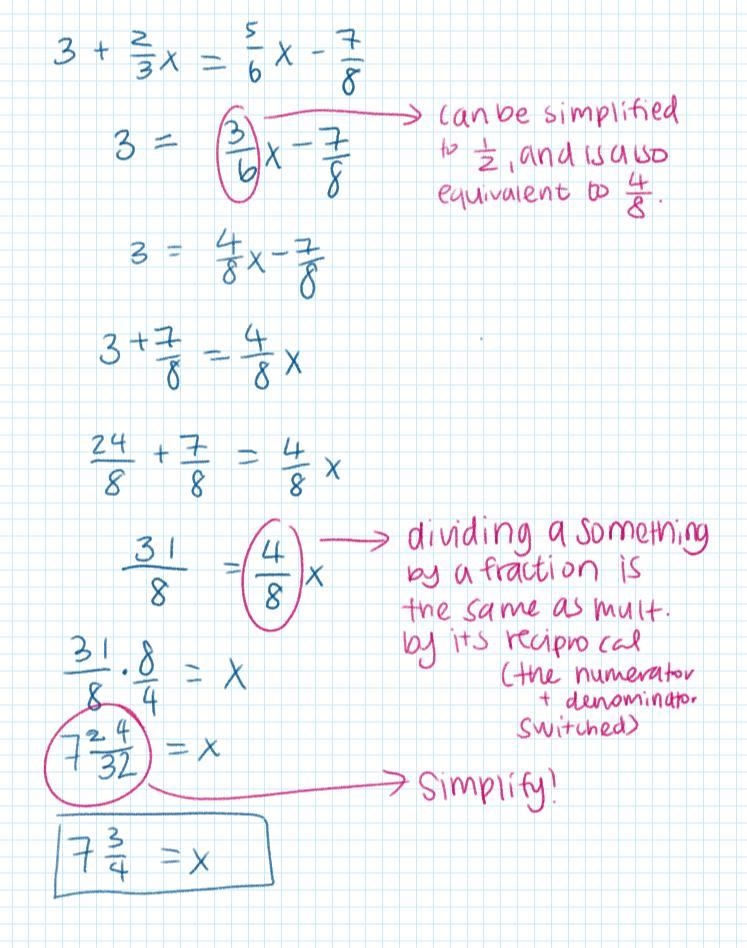 3 + 2/3 x = 5/6 x - 7/8
3 = 3/6 x - 7/8
can be simplified
to 1/2, and is also
equivalent to 4/8.
3 = 4/8 x - 7/8
3 + 7/8 = 4/8 x
24/8 + 7/8 = 4/8 x
31/8 = 4/8 x
dividing a something
by a fraction is
the same as mult.
by its reciprocal
(the numerator
+ denominator
switched)
31/8 · 8/4 = x
7 24/32 = x
Simplify!
7 3/4 = x